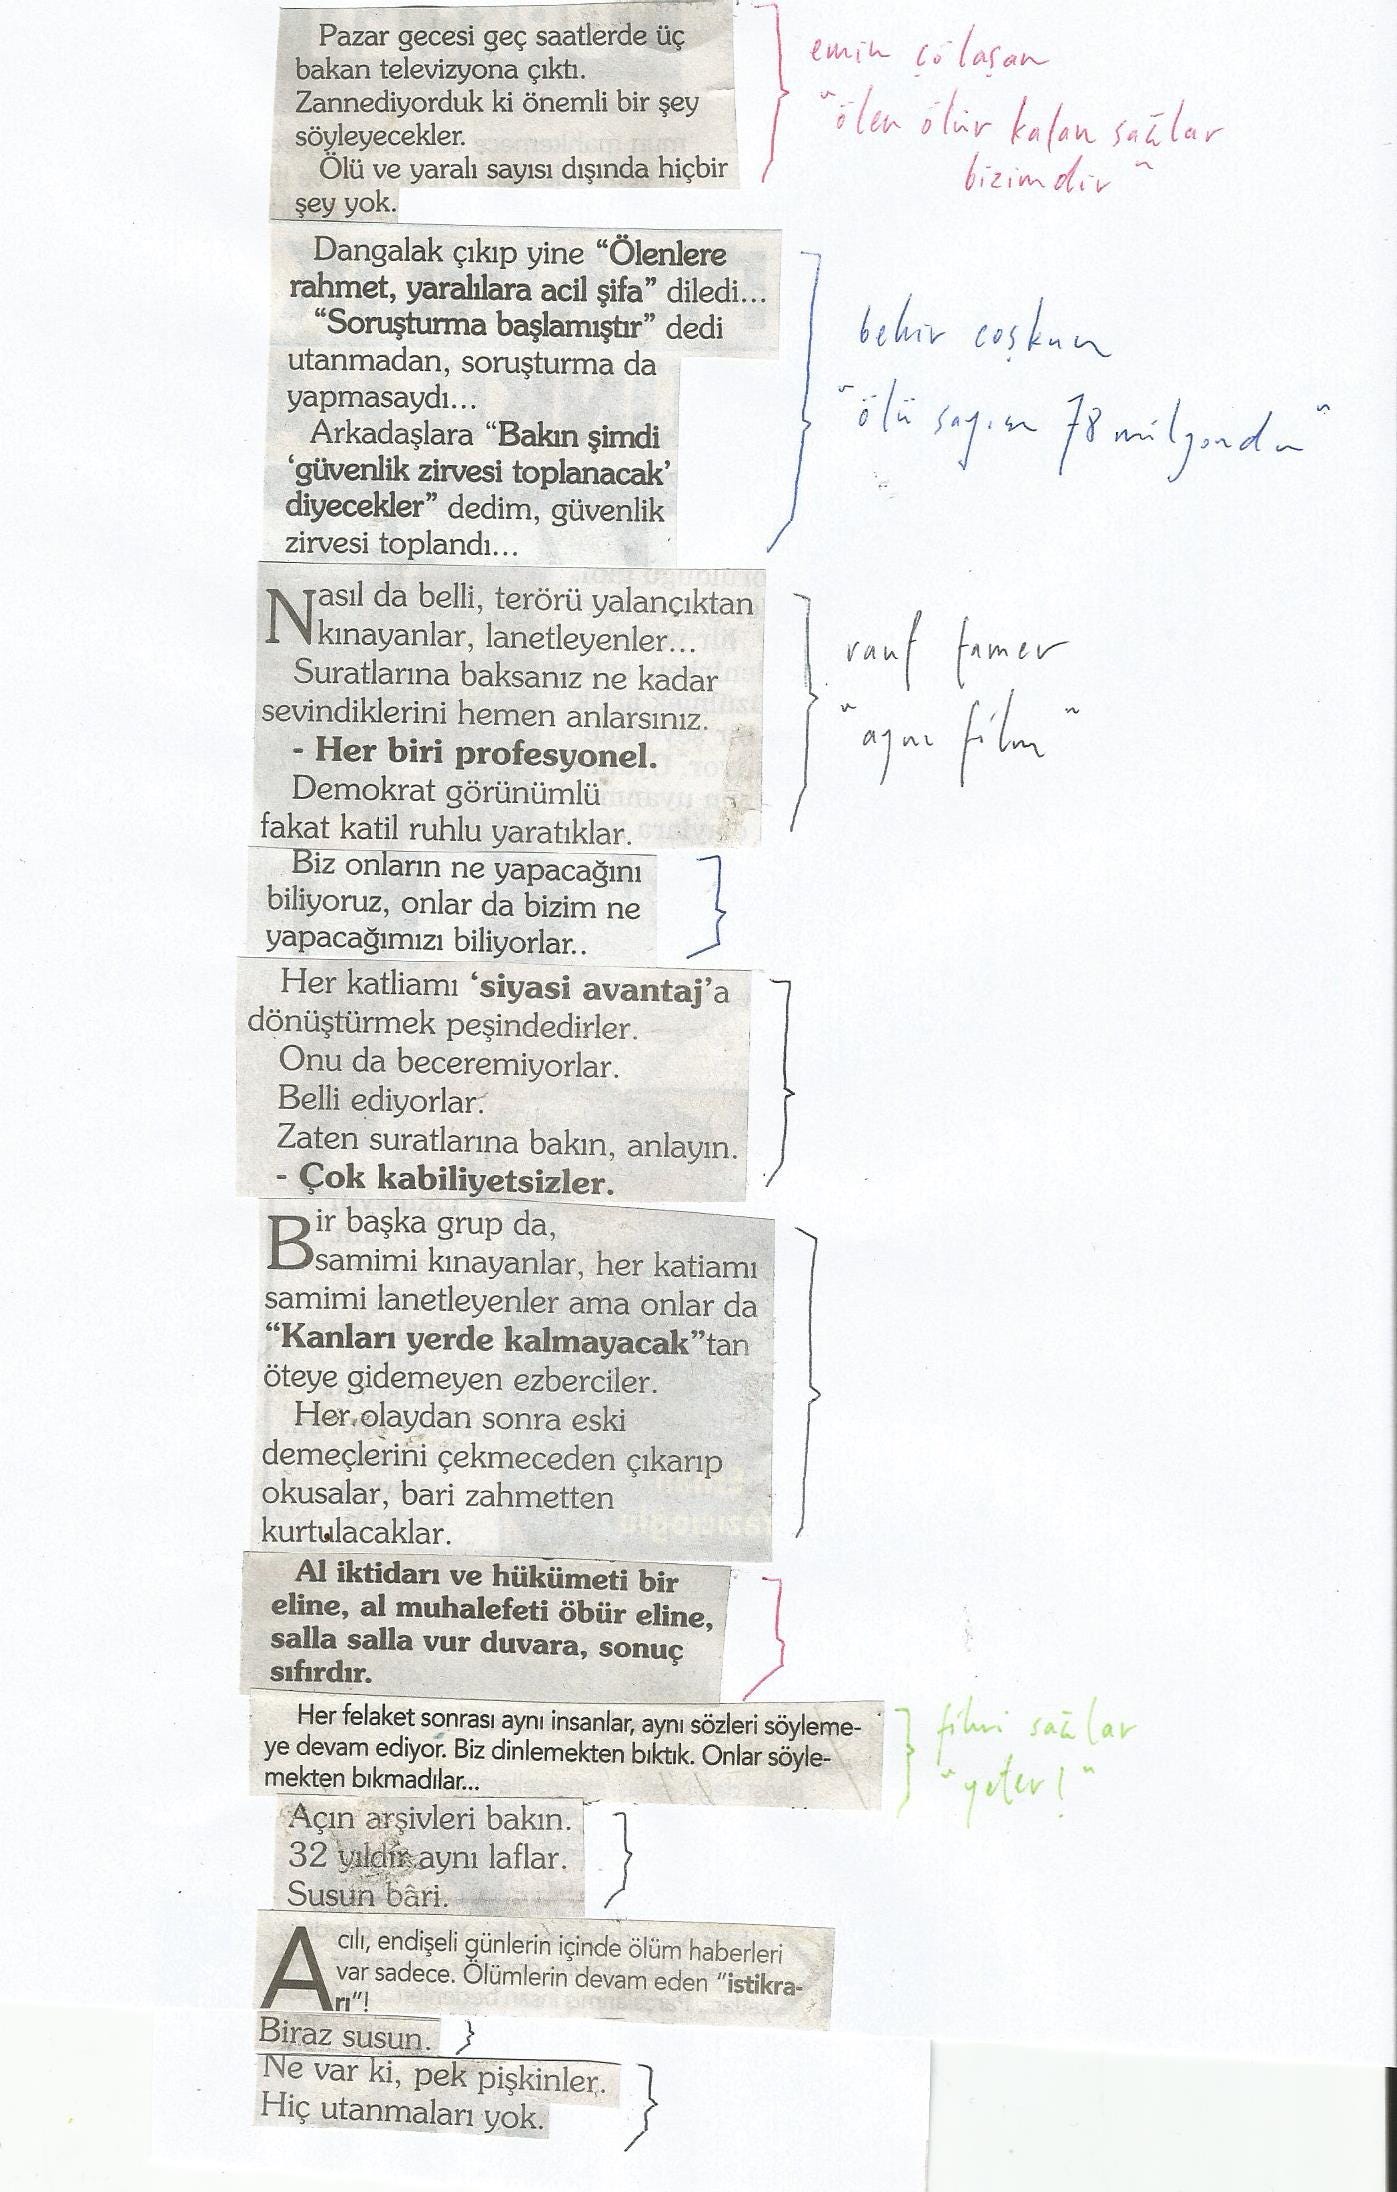 Pazar gecesi geç saatlerde üç
bakan televizyona çıktı.
Zannediyorduk ki önemli bir şey
söyleyecekler.
Ölü ve yaralı sayısı dışında hiçbir
şey yok.
emin çölaşan
"ölen ölür kalan sağlar
bizimdir"
Dangalak çıkıp yine “Ölenlere
rahmet, yaralılara acil şifa” diledi...
“Soruşturma başlamıştır” dedi
utanmadan, soruşturma da
yapmasaydı...
Arkadaşlara “Bakın şimdi
‘güvenlik zirvesi toplanacak’
diyecekler” dedim, güvenlik
zirvesi toplandı...
bekir coşkun
"ölü sayısı 78 milyondu"
Nasıl da belli, terörü yalançıktan
kınayanlar, lanetleyenler...
Suratlarına baksanız ne kadar
sevindiklerini hemen anlarsınız.
- Her biri profesyonel.
Demokrat görünümlü
fakat katil ruhlu yaratıklar.
rauf tamer
"aynı film"
Biz onların ne yapacağını
biliyoruz, onlar da bizim ne
yapacağımızı biliyorlar..
Her katliamı ‘siyasi avantaj’a
dönüştürmek peşindedirler.
Onu da beceremiyorlar.
Belli ediyorlar.
Zaten suratlarına bakın, anlayın.
- Çok kabiliyetsizler.
Bir başka grup da,
samimi kınayanlar, her katiamı
samimi lanetleyenler ama onlar da
“Kanları yerde kalmayacak”tan
öteye gidemeyen ezberciler.
Her olaydan sonra eski
demeçlerini çekmeceden çıkarıp
okusalar, bari zahmetten
kurtulacaklar.
Al iktidarı ve hükümeti bir
eline, al muhalefeti öbür eline,
salla salla vur duvara, sonuç
sıfırdır.
Her felaket sonrası aynı insanlar, aynı sözleri söyleme-
ye devam ediyor. Biz dinlemekten bıktık. Onlar söyle-
mekten bıkmadılar...
fikri sağlar
"yeter!"
Açın arşivleri bakın.
32 yıldır aynı laflar.
Susun bâri.
Acılı, endişeli günlerin içinde ölüm haberleri
var sadece. Ölümlerin devam eden “istikra-
rı”!
Biraz susun.
Ne var ki, pek pişkinler.
Hiç utanmaları yok.